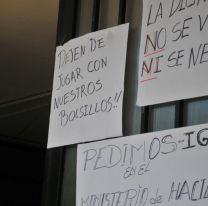 DEJEN DE
JUGAR CON
NUESTROS
BOLSILLOS!!
LA
NO SE V
NI SE NE
PEDIMOS-IG
EN EL
MINISTERIO de HACI